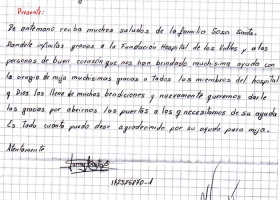 Presente:
De antemano reciba muchos saludos de la familia Sosa Santa.
Dandole infinitas gracias a la Fundación Hospital de los Valles y a las
personas de buen corazón que nos han brindado muchisima ayuda con
la cirugia de mija muchisimas gracias a todos los miembros del hospital
q Dios los llene de muchas bendiciones y nuevamente queremos darle
las gracias por abrirnos las puertas a los q necesitamos de su ayuda
Es todo cuanto puedo decir agradeciendo por su ayuda para mija.
Atentamente